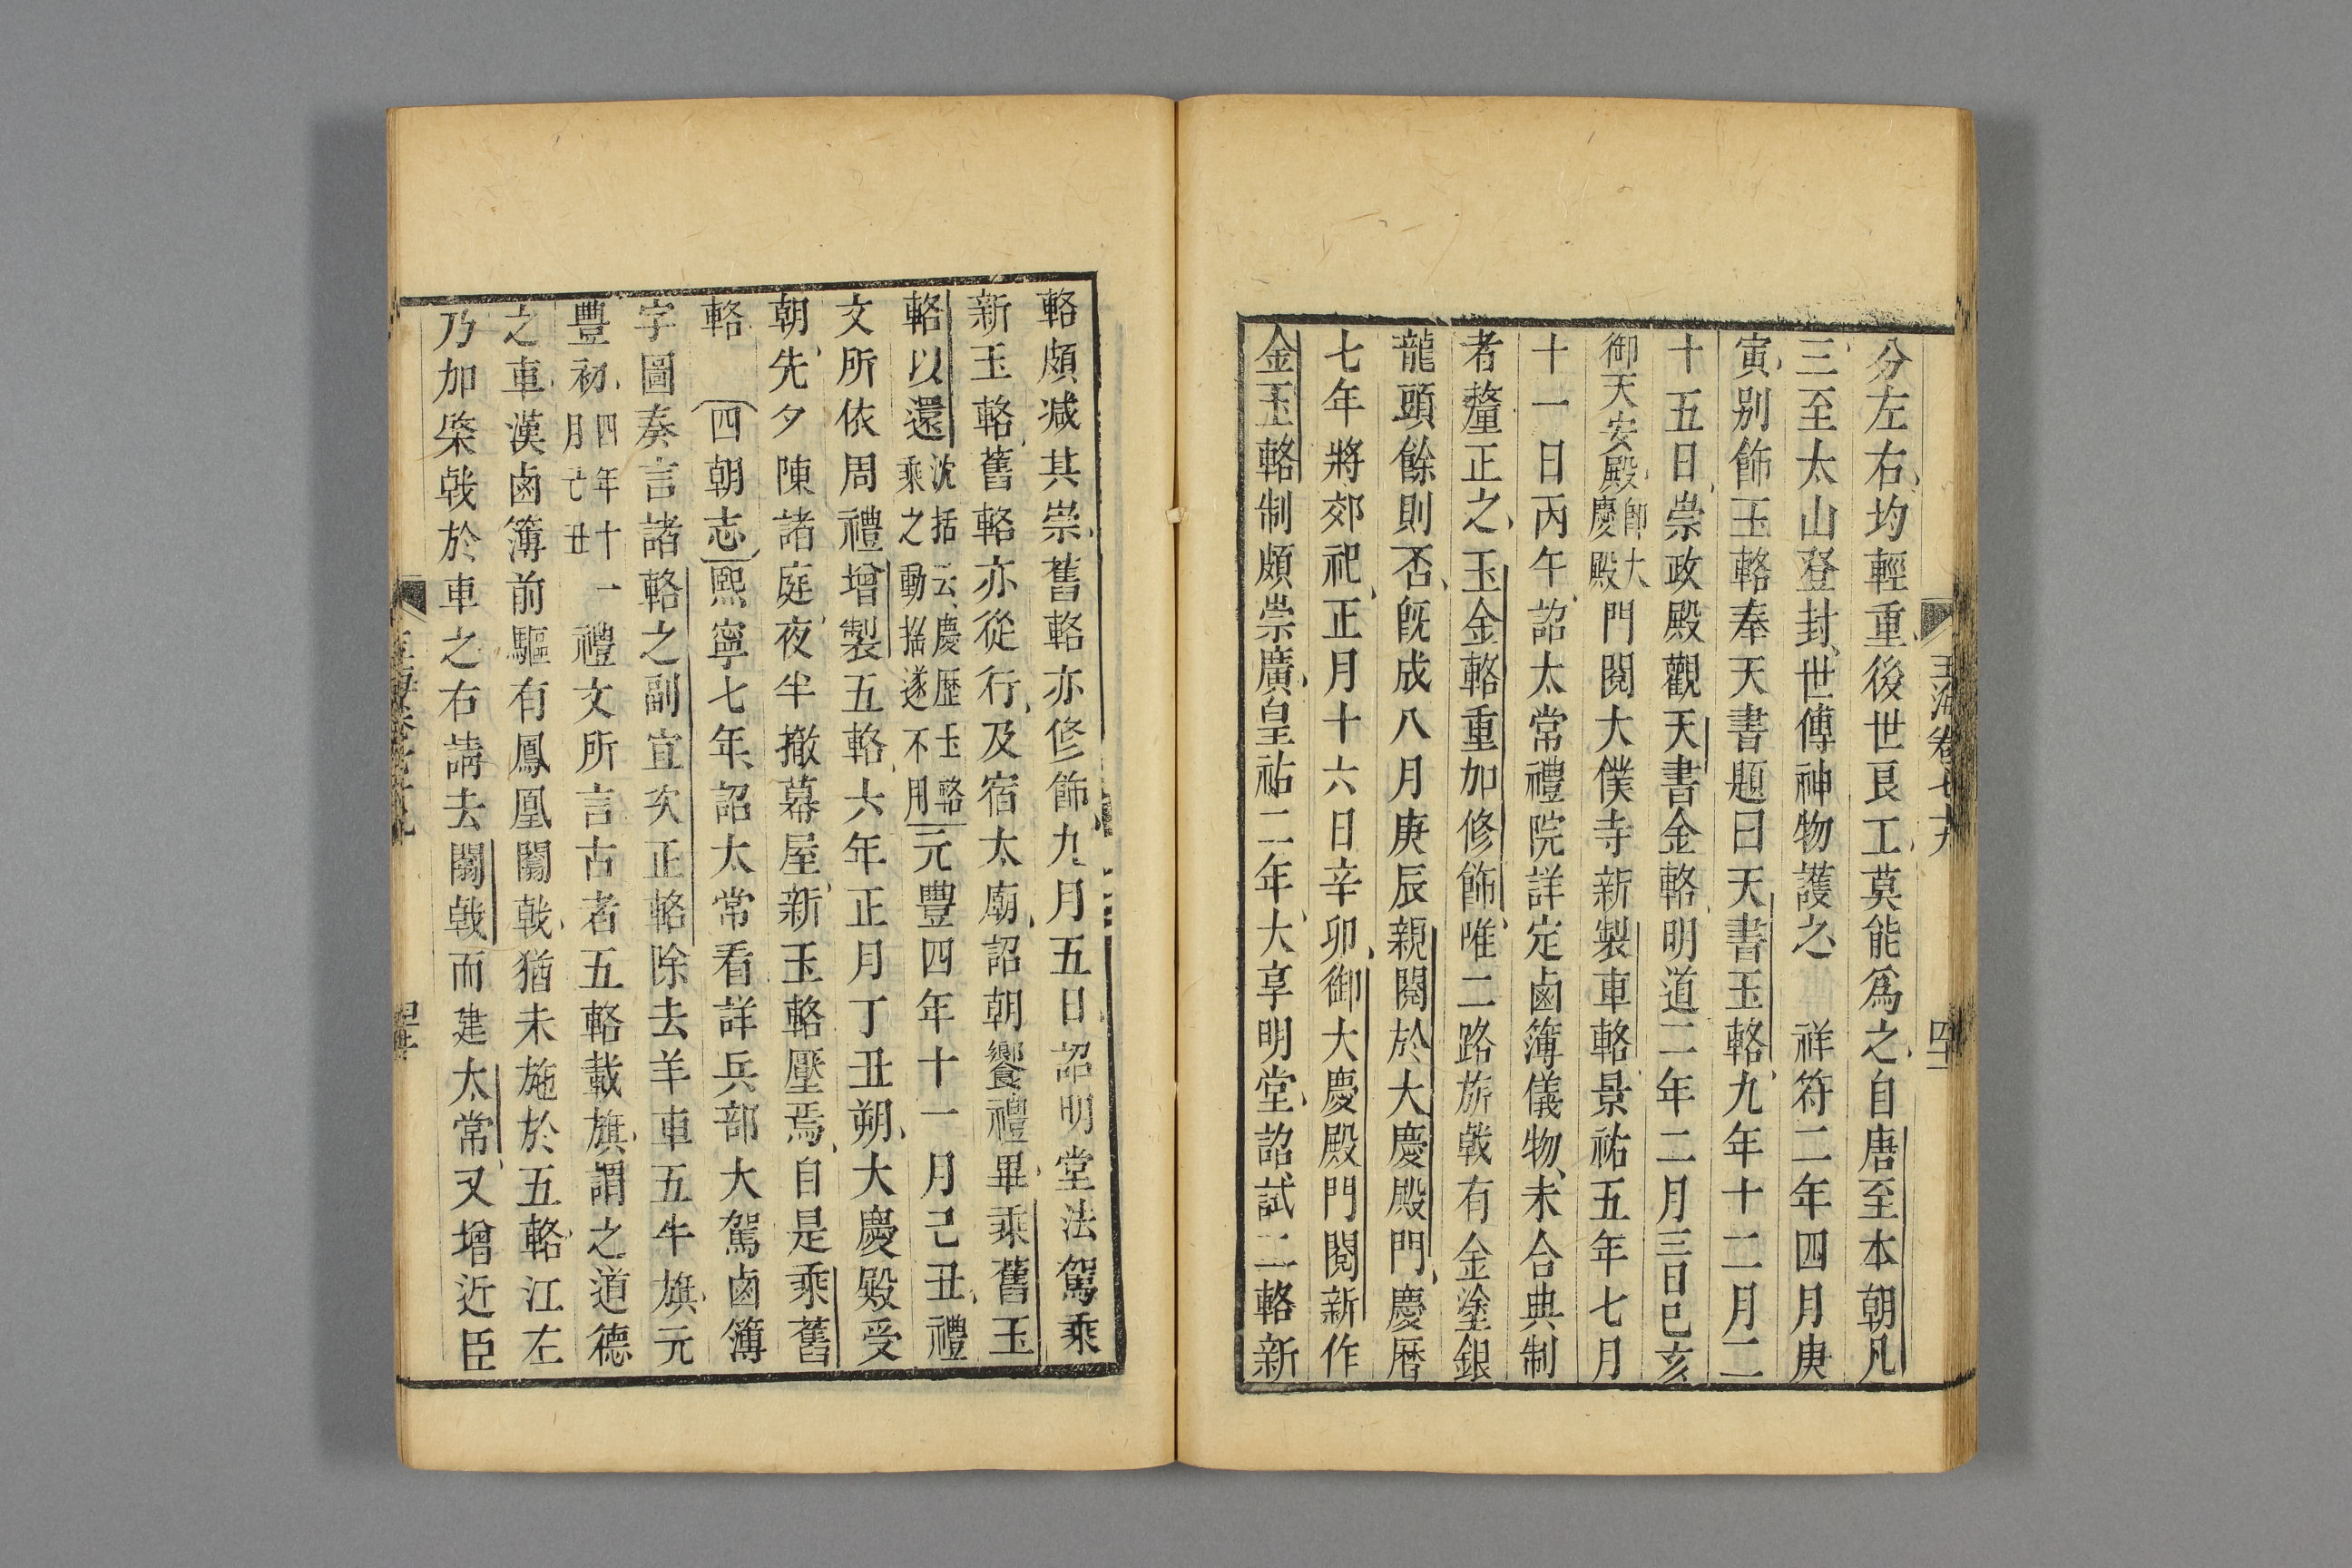 玉海卷七十九
分左右均輕重後世良工莫能爲之自唐至本朝凡
三至太山登封世傳神物護之 祥符二年四月庚
寅別飾玉輅奉天書題曰天書玉輅九年十二月二
十五日崇政殿觀天書金輅明道二年二月三日己亥
御天安殿卽大慶殿門閱大僕寺新製車輅景祐五年七月
十一日丙午詔太常禮院詳定鹵簿儀物未合典制
者釐正之玉金輅重加修飾唯二路旂戟有金塗銀
龍頭餘則否旣成八月庚辰親閱於大慶殿門慶曆
七年將郊祀正月十六日辛卯御大慶殿門閱新作
金玉輅制頗崇廣皇祐二年大享明堂詔試二輅新
輅頗減其崇舊輅亦修飾九月五日詔明堂法駕乘
新玉輅舊輅亦從行及宿太廟詔朝饗禮畢乘舊玉
輅以還沈括云慶歷玉輅乘之動搖遂不用元豐四年十一月己丑禮
文所依周禮增製五輅六年正月丁丑朔大慶殿受
朝先夕陳諸庭夜半撤幕屋新玉輅壓焉自是乘舊
輅 四朝志熙寧七年詔太常看詳兵部大駕鹵簿
字圖奏言諸輅之副宜次正輅除去羊車五牛旗元
豐初四年十一月己丑禮文所言古者五輅載旗謂之道德
之車漢鹵簿前驅有鳳凰闟戟猶未施於五輅江左
乃加棨戟於車之右請去闟戟而建太常又增近臣